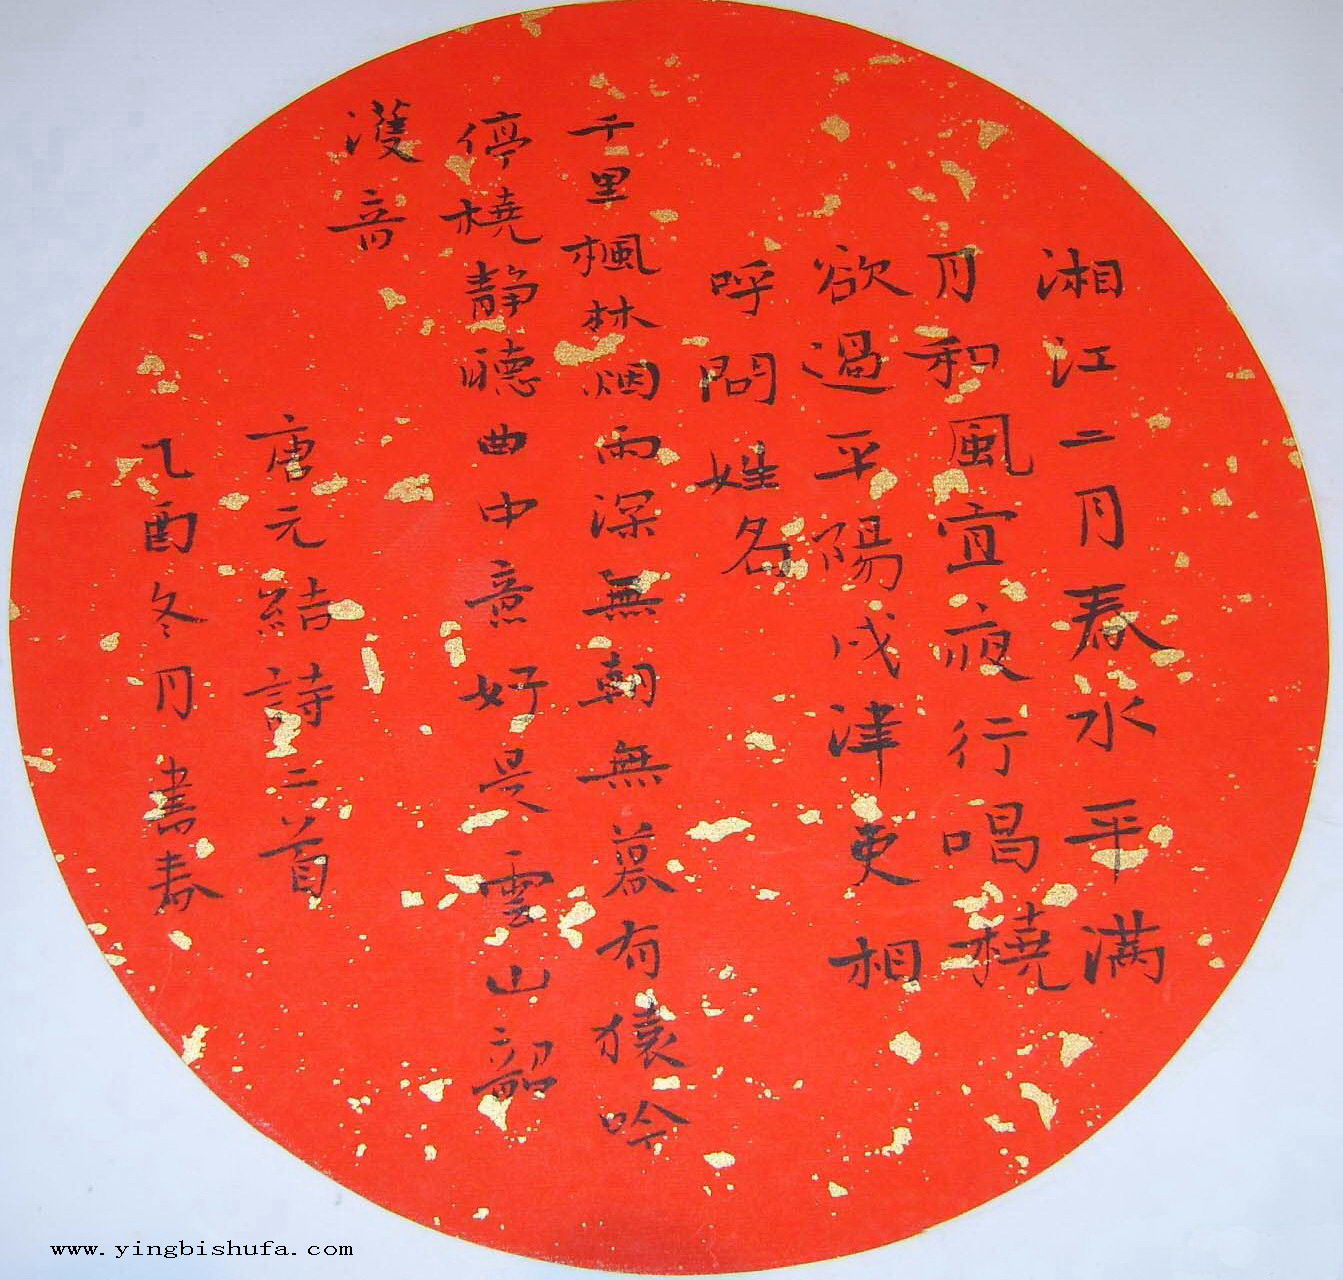 湘江二月春水平满
月和風宜夜行唱橈
欲過平陽戍津吏相
呼問姓名
千里楓林烟雨深無朝無暮有猿吟
停橈静聴曲中意好是雲山韶
濩音
唐元結詩二首
乙酉冬月書
www.yingbishufa.com